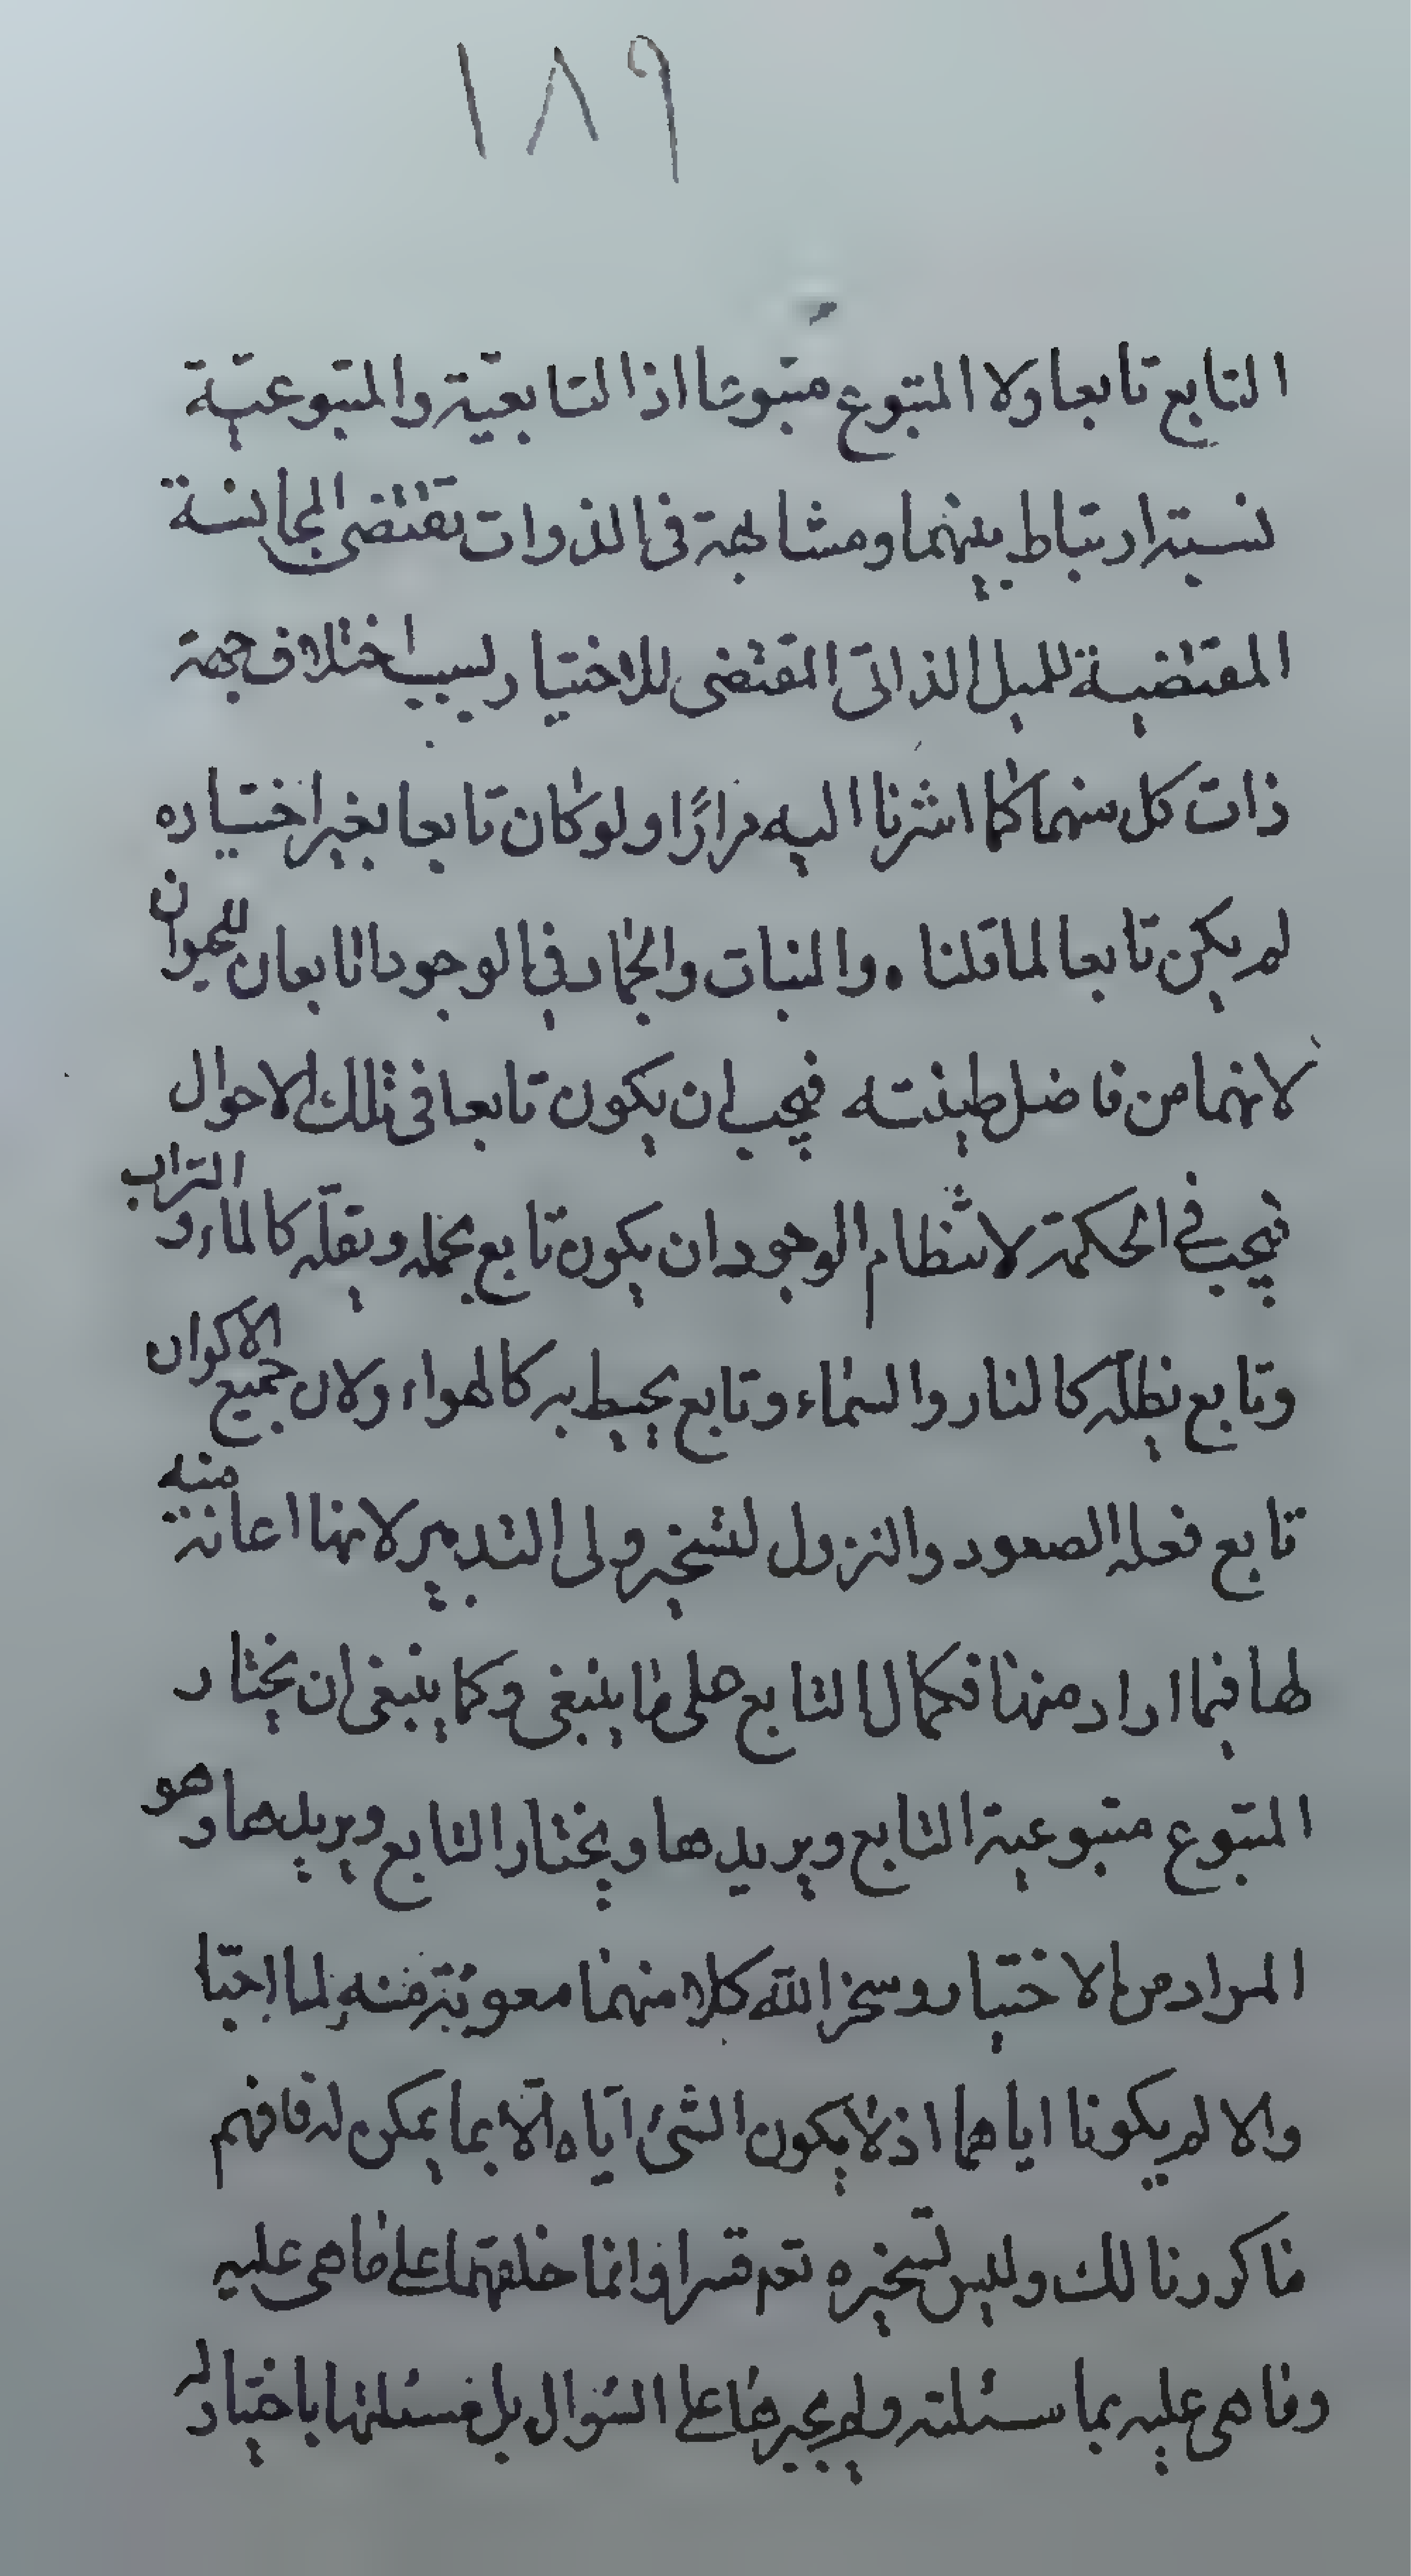 ١٨٩
التابع تابعا ولا المتبوع متبوعا اذا التابعية والمتبوعية
نسبة ارتباط بينهما ومشابهة فى الذوات تقتضى المجانسة
المقتضية للميل الذاتى المقتضى للاختيار لسبب اختلاف جهة
ذات كل منهما كما اشرنا اليه مرارًا ولو كان تابعا بغير اختياره
لم يكن تابعا لما قلنا . والنبات والجماد فى الوجود تابعان للحيوان
لانهما من فاضل طينته فيجب ان يكون تابعا فى تلك الاحوال
فيجب فى الحكمة لانتظام الوجود ان يكون تابع يحمله ويقلّه كالماء والتراب
وتابع يظلّه كالنار والسماء وتابع يحيط به كالهواء ولان جميع الاكوان
تابع فعله الصعود والنزول لتسخير ولى التدبير لانها اعانة منه
لها فيما اراد منها فكمال التابع على ما ينبغى وكما ينبغى ان يختار
المتبوع متبوعية التابع ويريدها ويختار التابع ويريدها وهو
المراد من الاختيار وسخر الله كلا منهما معونة منه لما احبّا
والا لم يكونا اياهما اذ لا يكون الشئ ايّاه الّا بما يمكن له فافهم
ما كررنا لك وليس تسخيره تعم قسرا وانما خلقهما على ما هى عليه
وما هى عليه بما سئلته ولم يجبرها على السؤال بل فسئلتها باختيار له